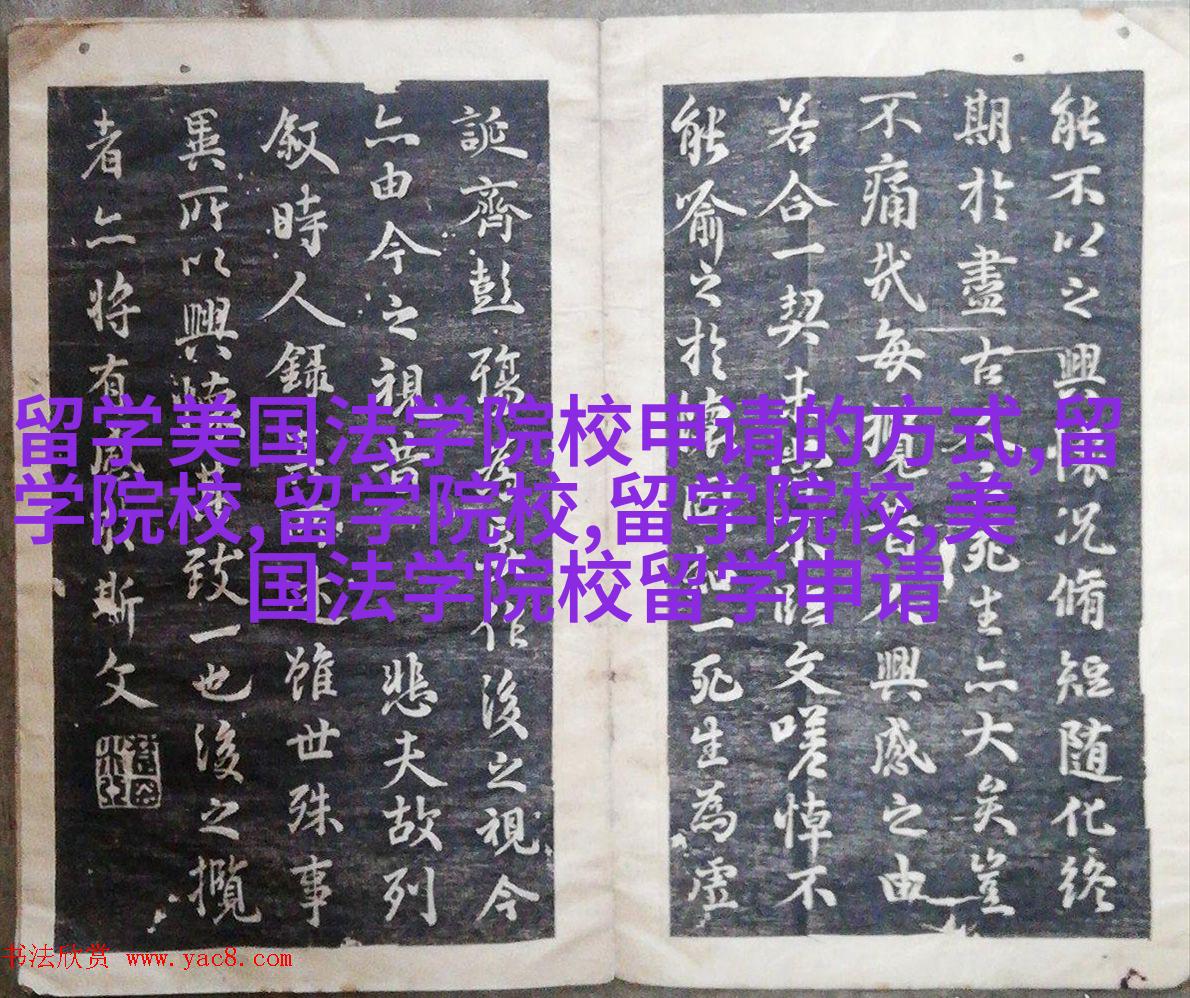 留学美国法学院校申请的方式,留
学院校,留学院校,留学院校,美
国法学院校留学申请
能不以之興懷況脩短随化終
期於盡古人云死生亦大矣豈
不痛哉每攬昔人興感之由
若合一契未嘗不臨文嗟悼不
能喻之於懷固知一死生為虛
誕齊彭殤為妄作後之視今
亦由今之視昔悲夫故列
敘時人錄其所述雖世殊事
異所以興懷其致一也後之攬
者亦将有感於斯文
书法欣赏 www.yac8.com